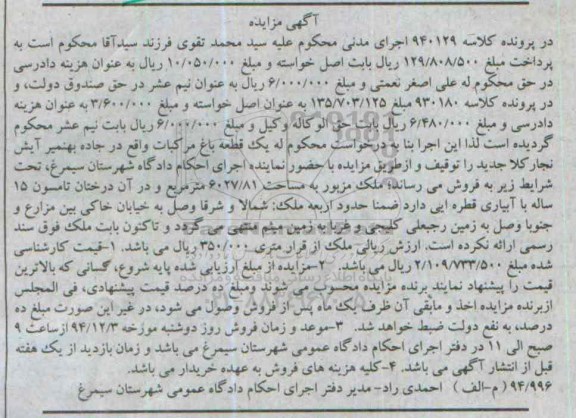 آگهی مزایده
در پرونده کلاسه ۹۴۰۱۲۹ اجرای مدنی محکوم علیه سید محمد تقوی فرزند سیدآقا محکوم است به
پرداخت مبلغ ۱۲۹/۸۰۸/۵۰۰ ریال بابت اصل خواسته و مبلغ ۱۰/۰۵۰/۰۰۰ ریال به عنوان هزینه دادرسی
در حق محکوم له علی اصغر نعمتی و مبلغ ۶/۰۰۰/۰۰۰ ریال به عنوان نیم عشر در حق صندوق دولت، و
در پرونده کلاسه ۹۳۰۱۸۰ مبلغ ۱۳۵/۷۰۳/۱۲۵ به عنوان اصل خواسته و مبلغ ۳/۶۰۰/۰۰۰ به عنوان هزینه
دادرسی و مبلغ ۶/۴۸۰/۰۰۰ ریال حق الوکاله وکیل و مبلغ ۶/۰۰۰/۰۰۰ ریال بابت نیم عشر محکوم
گردیده است لذا این اجرا بنا به درخواست محکوم له یک قطعه باغ مرکبات واقع در جاده بهنمیر آیش
نجارکلا جدید را توقیف و ازطریق مزایده با حضور نماینده اجرای احکام دادگاه شهرستان سیمرغ، تحت
شرایط زیر به فروش می رساند؛ ملک مزبور به مساحت ۶۰۲۷/۸۱ مترمربع و در آن درختان تامسون ۱۵
ساله با آبیاری قطره ایی دارد ضمنا حدود اربعه ملک: شمالا و شرقا وصل به خیابان خاکی بین مزارع و
جنوبا وصل به زمین رجبعلی کلیجی و غربا به زمین میثم منتهی می گردد و تاکنون بابت ملک فوق سند
رسمی ارائه نکرده است. ارزش ریالی ملک از قرار متری ۳۵۰/۰۰۰ ریال می باشد. ۱-قیمت کارشناسی
شده مبلغ ۲/۱۰۹/۷۳۳/۵۰۰ ریال می باشد. ۲-مزایده از مبلغ ارزیابی شده پایه شروع، کسانی که بالاترین
قیمت را پیشنهاد نمایند برنده مزایده محسوب می شوند ومبلغ ده درصد قیمت پیشنهادی، فی المجلس
ازبرنده مزایده اخذ و مابقی آن ظرف یک ماه پس از فروش وصول می شود، در غیر این صورت مبلغ ده
درصد، به نفع دولت ضبط خواهد شد. ۳-موعد و زمان فروش روز دوشنبه مورخه ۹۴/۱۲/۳ ازساعت ۹
صبح الی ۱۱ در دفتر اجرای احکام دادگاه عمومی شهرستان سیمرغ می باشد و زمان بازدید از یک هفته
قبل از انتشار آگهی می باشد. ۴-کلیه هزینه های فروش به عهده خریدار می باشد.
۹۴/۹۹۶ (م-الف) احمدی راد- مدیر دفتر اجرای احکام دادگاه عمومی شهرستان سیمرغ